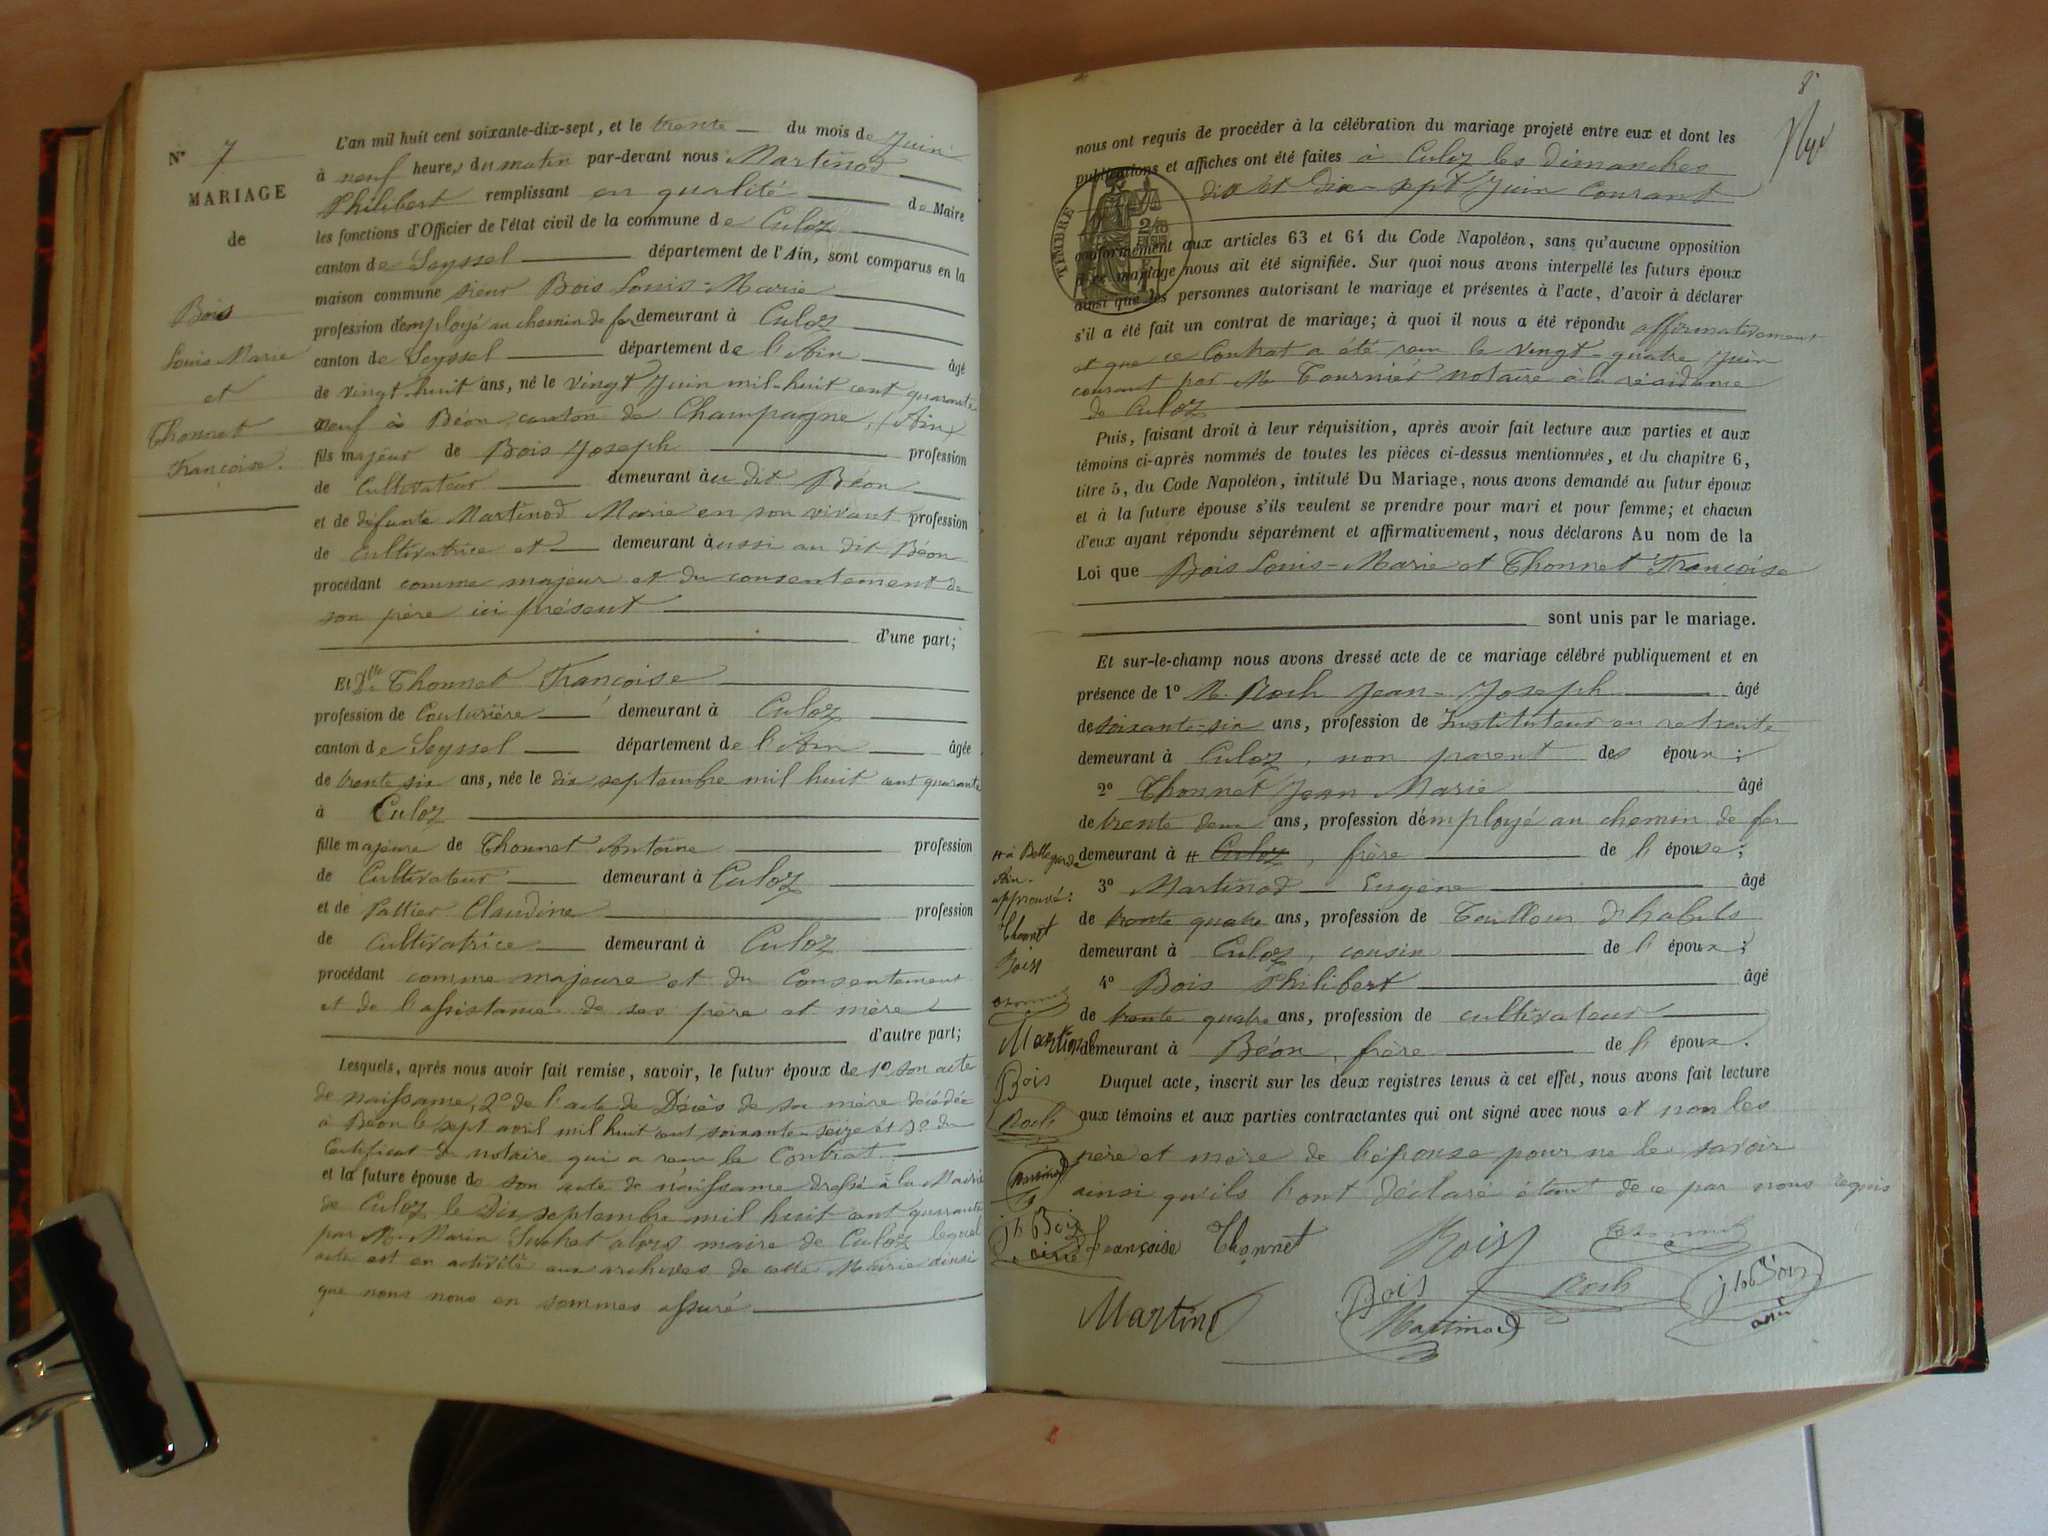 N° 7
MARIAGE
de
Bois
Louis Marie
et
Thonnet
Françoise.
L'an mil huit cent soixante-dix-sept, et le trente du mois de Juin
à neuf heures du matin par-devant nous Martinod
Philibert remplissant en qualité de Maire
les fonctions d'Officier de l'état civil de la commune de Culoz
canton de Seyssel département de l'Ain, sont comparus en la
maison commune sieur Bois Louis-Marie
profession d'employé au chemin de fer demeurant à Culoz
canton de Seyssel département de l'Ain âgé
de vingt-huit ans, né le vingt Juin mil-huit cent quarante
neuf à Béon canton de Champagne, (Ain)
fils majeur de Bois Joseph profession
de Cultivateur demeurant au dit Béon
et de défunte Martinod Marie en son vivant profession
de Cultivatrice et demeurant aussi au dit Béon
procédant comme majeur et du consentement de
son père ici présent
d'une part;
Et Dlle Thonnet Françoise
profession de Couturière demeurant à Culoz
canton de Seyssel département de l'Ain âgée
de trente six ans, née le dix septembre mil huit cent quarante
à Culoz
fille majeure de Thonnet Antoine profession
de Cultivateur demeurant à Culoz
et de Pallier Claudine profession
de Cultivatrice demeurant à Culoz
procédant comme majeure et du Consentement
et de l'assistance de ses père et mère
d'autre part;
Lesquels, après nous avoir fait remise, savoir, le futur époux de 1° son acte
de naissance, 2° de l'acte de Décès de sa mère décédée
à Béon le sept avril mil huit cent soixante-seize et 3° du
Certificat du notaire qui a reçu le Contrat
et la future épouse de son acte de naissance dressé à la Mairie
de Culoz le Dix septembre mil huit cent quarante
par M. Marin Suchet alors maire de Culoz lequel
acte est en activité aux archives de cette Mairie ainsi
que nous nous en sommes assuré.
8
nous ont requis de procéder à la célébration du mariage projeté entre eux et dont les
publications et affiches ont été faites à Culoz les dimanches
dix et dix-sept Juin Courant
TIMBRE
conformément aux articles 63 et 64 du Code Napoléon, sans qu'aucune opposition
à ce mariage nous ait été signifiée. Sur quoi nous avons interpellé les futurs époux
ainsi que les personnes autorisant le mariage et présentes à l'acte, d'avoir à déclarer
s'il a été fait un contrat de mariage; à quoi il nous a été répondu affirmativement
et que ce Contrat a été reçu le vingt-quatre Juin
courant par Me Tournier notaire à la résidence
de Culoz
Puis, faisant droit à leur réquisition, après avoir fait lecture aux parties et aux
témoins ci-après nommés de toutes les pièces ci-dessus mentionnées, et du chapitre 6,
titre 5, du Code Napoléon, intitulé Du Mariage, nous avons demandé au futur époux
et à la future épouse s'ils veulent se prendre pour mari et pour femme; et chacun
d'eux ayant répondu séparément et affirmativement, nous déclarons Au nom de la
Loi que Bois Louis-Marie et Thonnet Françoise
sont unis par le mariage.
Et sur-le-champ nous avons dressé acte de ce mariage célébré publiquement et en
présence de 1° M. Roch Jean-Joseph âgé
de soixante-six ans, profession de Instituteur en retraite
demeurant à Culoz, non parent des époux;
2° Thonnet Jean Marie âgé
de trente deux ans, profession d'employé au chemin de fer
demeurant à # Culoz, frère de l'épouse;
3° Martinod Eugène âgé
de trente quatre ans, profession de Tailleur d'habits
demeurant à Culoz, cousin de l'époux;
4° Bois Philibert âgé
de trente quatre ans, profession de cultivateur
demeurant à Béon, frère de l'époux.
Duquel acte, inscrit sur les deux registres tenus à cet effet, nous avons fait lecture
aux témoins et aux parties contractantes qui ont signé avec nous et non les
père et mère de l'épouse pour ne le savoir
ainsi qu'ils l'ont déclaré étant de ce par nous requis
# à Bellegarde
Ain.
approuvé:
Thonnet
Bois
Martinod
Bois
Roch
Martinod
jh Bois
ainé
Françoise Thonnet
Bois
Martinod
Bois
Roch
jh Bois
ainé
Martinod